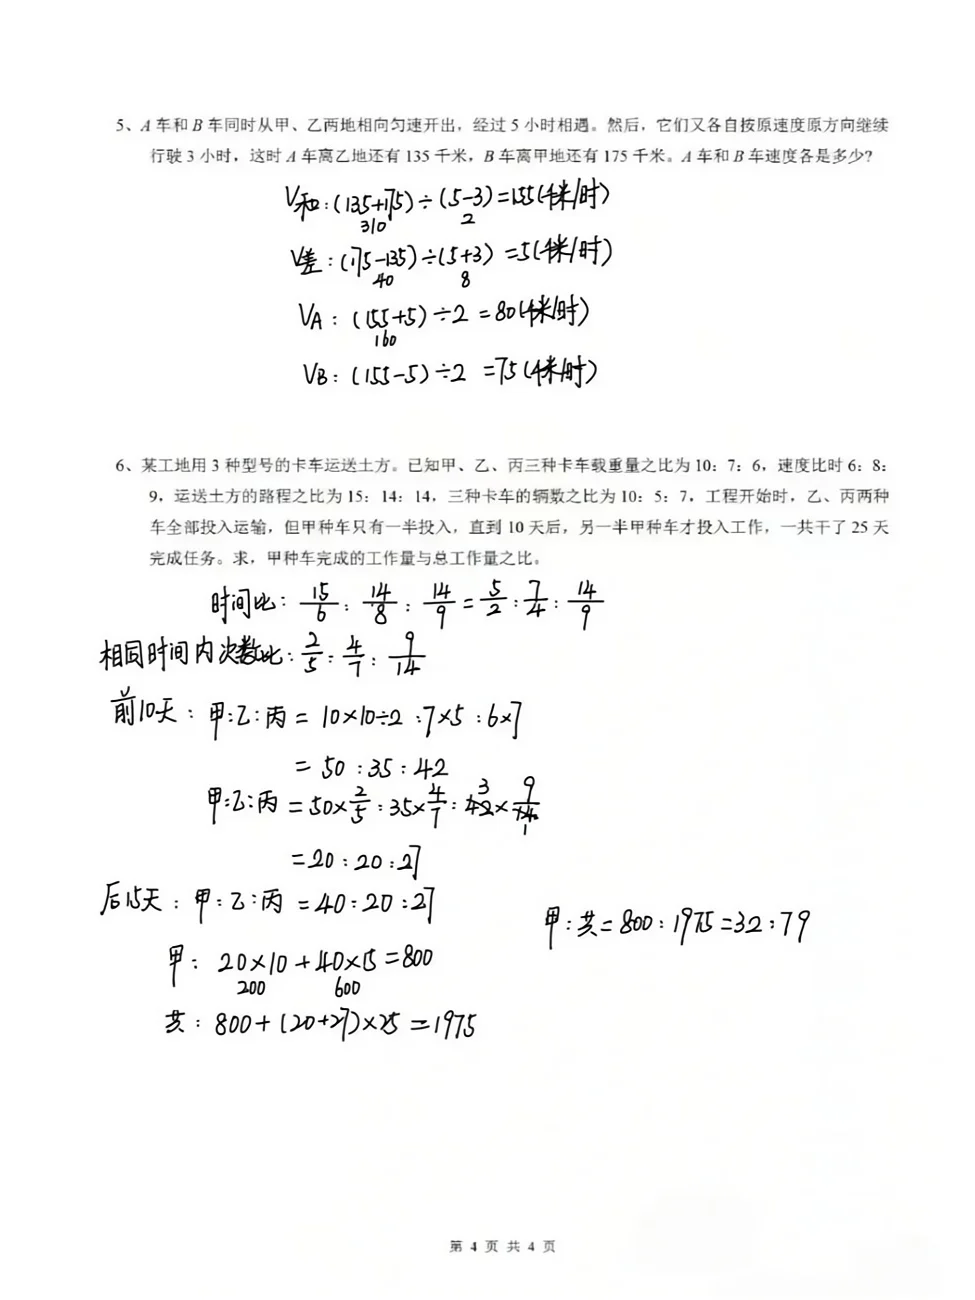 5、A 车和 B 车同时从甲、乙两地相向匀速开出，经过 5 小时相遇。然后，它们又各自按原速度原方向继续
行驶 3 小时，这时 A 车离乙地还有 135 千米，B 车离甲地还有 175 千米。A 车和 B 车速度各是多少?
V和：(135+175)÷(5-3)=155(千米/时)
310 2
V差：(175-135)÷(5+3)=5(千米/时)
40 8
VA：(155+5)÷2=80(千米/时)
160
VB：(155-5)÷2=75(千米/时)
6、某工地用 3 种型号的卡车运送土方。已知甲、乙、丙三种卡车载重量之比为 10：7：6，速度比时 6：8：
9，运送土方的路程之比为 15：14：14，三种卡车的辆数之比为 10：5：7，工程开始时，乙、丙两种
车全部投入运输，但甲种车只有一半投入，直到 10 天后，另一半甲种车才投入工作，一共干了 25 天
完成任务。求，甲种车完成的工作量与总工作量之比。
时间比：15/6：14/8：14/9=5/2：7/4：14/9
相同时间内次数比：2/5：4/7：9/14
前10天：甲：乙：丙=10×10÷2：7×5：6×7
=50：35：42
甲：乙：丙=50×2/5：35×4/7：42×9/14
3 1
=20：20：27
后15天：甲：乙：丙=40：20：27
甲：20×10+40×15=800
200 600
共：800+(20+27)×25=1975
甲：共=800：1975=32：79
第 4 页 共 4 页